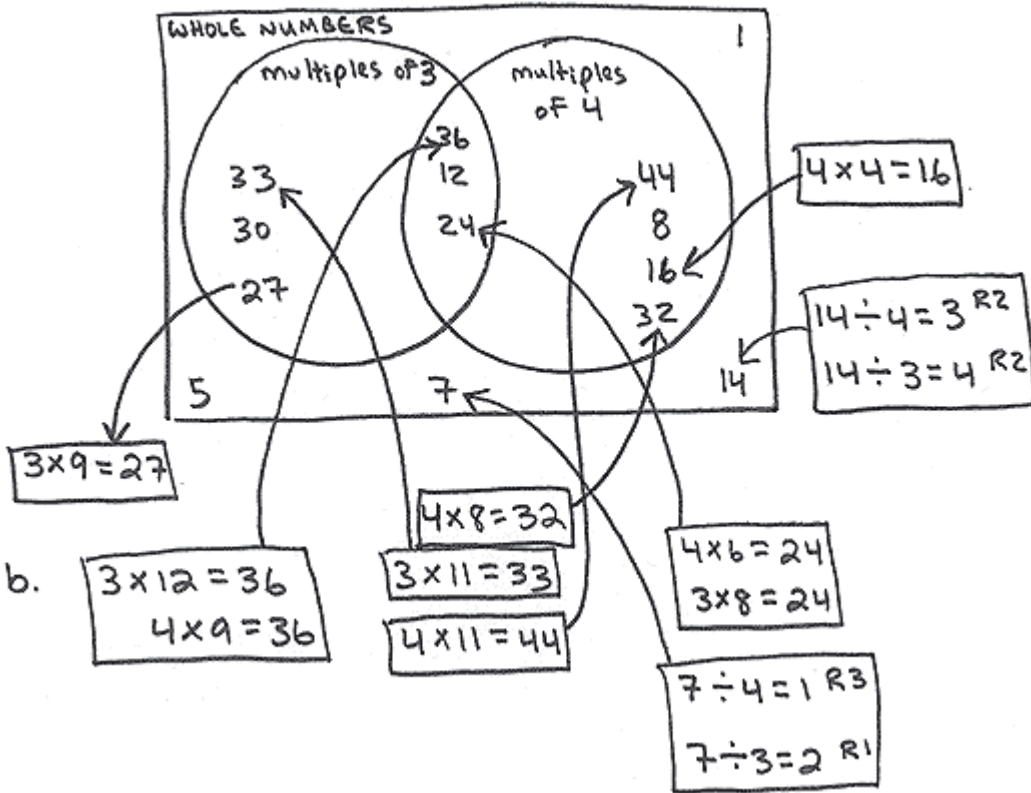 WHOLE NUMBERS
1
multiples of 3
multiples
of 4
36
12
24
33
30
27
44
8
16
32
4×4=16
14÷4=3 R2
14÷3=4 R2
5
7
14
3×9=27
4×8=32
b.
3×12=36
4×9=36
3×11=33
4×11=44
4×6=24
3×8=24
7÷4=1 R3
7÷3=2 R1